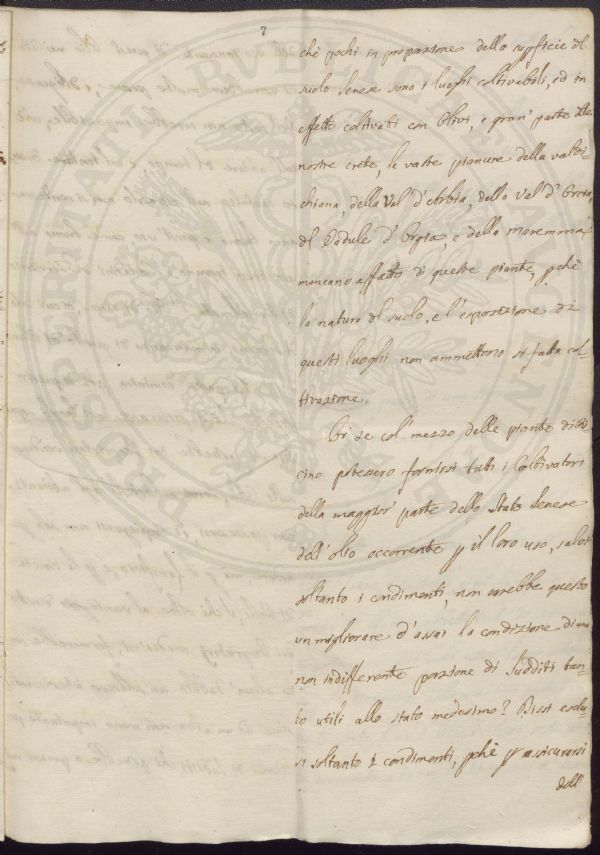 7
chè pochi in proporzione dello supficie del
suolo Senese sono i luoghi coltivabili, ed in
effetto coltivati con Olivi, e gran' parte delle
nostre crete, le vaste pianure della valdi
chiana, della Val' d'Arbia, della Val d'Orcia,
del Padule d'Orgia, e della maremma
mancano affatto di queste piante, pchè
la natura del suolo, e l'esposizione di
questi luoghi non ammettono si fatta col-
tivazione.
Or se col' mezzo delle piante di Ri
cino potessero fornirsi tutti i Coltivatori
della maggior' parte dello Stato Senese
dell'olio occorrente p il loro uso, salvi
soltanto i condimenti, non sarebbe questo
un migliorare d'assai la condizione di una
non indifferente porzione di Sudditi tan-
to utili allo stato medesimo? Dissi esclu-
si soltanto i condimenti, pchè p assicurarsi
dell'